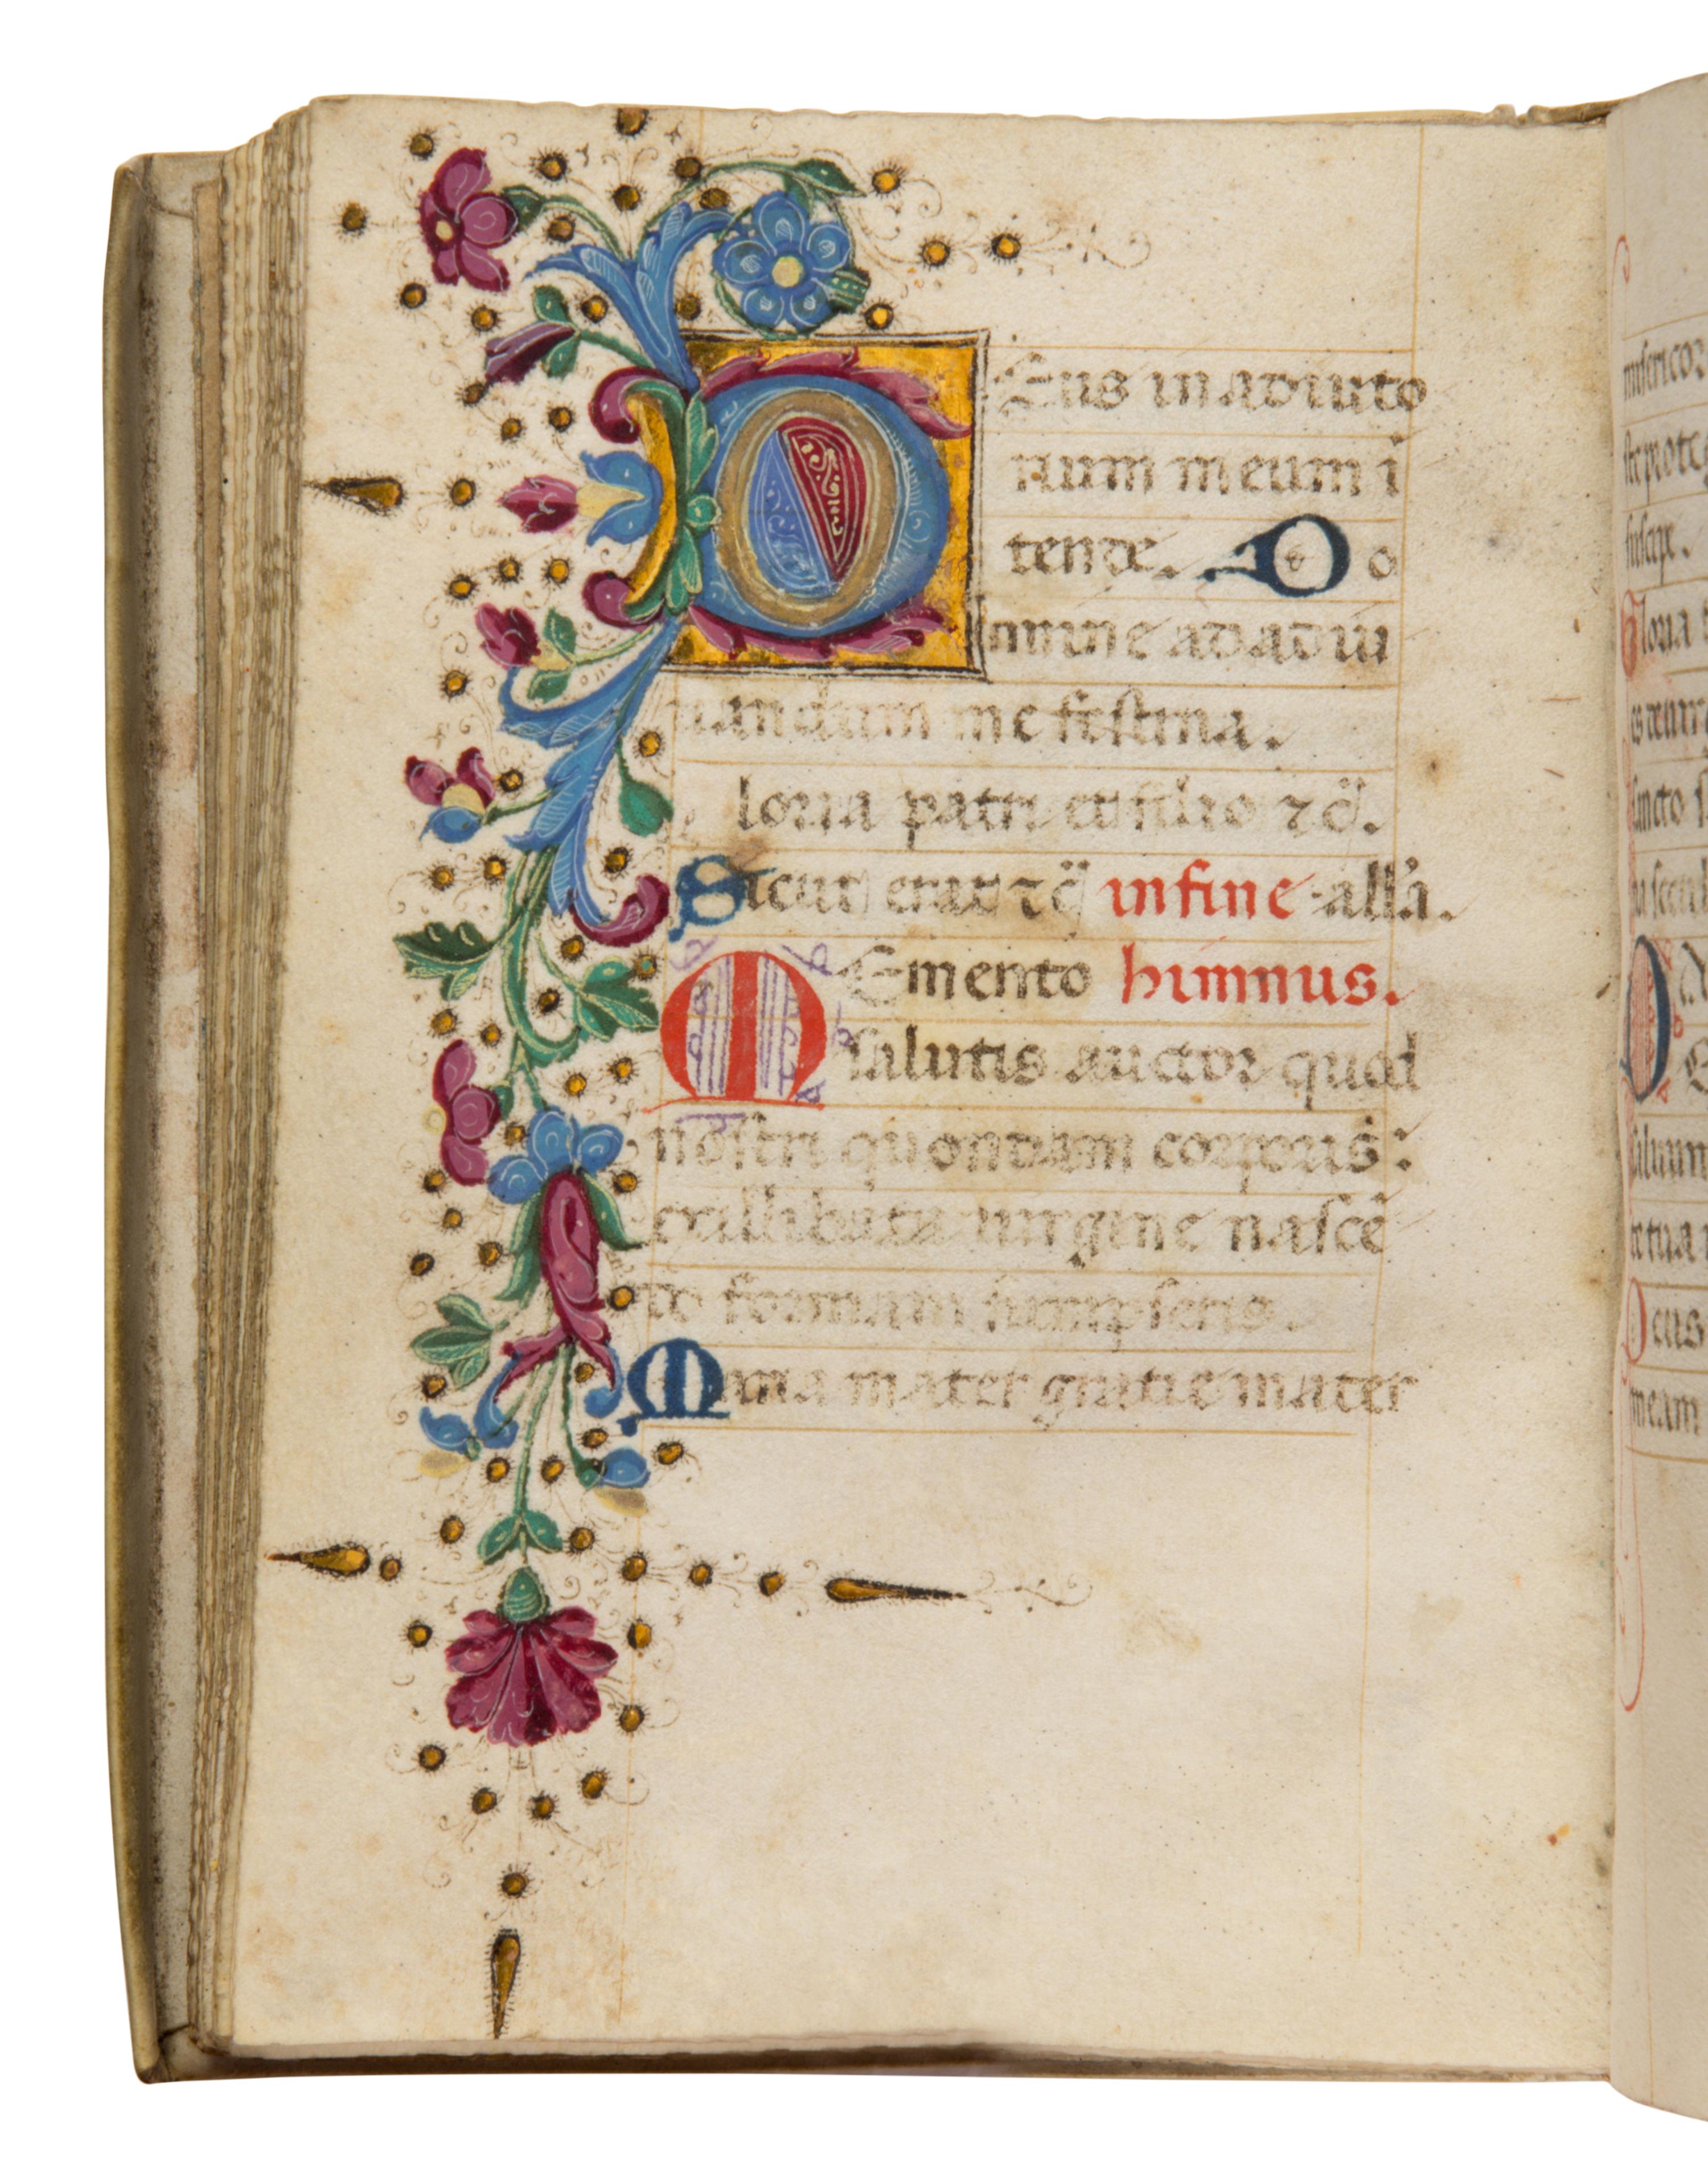 DEus in adiuto
rium meum i
tende. Do
mine ad adiu
uandum me festina.
loria patri et filio ⁊c̄.
Sicut erat ⁊c̄ in fine all'a.
MEmento himnus.
salutis auctor quod
nostri quondam corporis:
ex illibata uirgine nascē
do formam sumpseris.
Maria mater gratie mater
misericor
suscipe.
Gloria
es deum
sancto s
D
saluum
Deus
meam